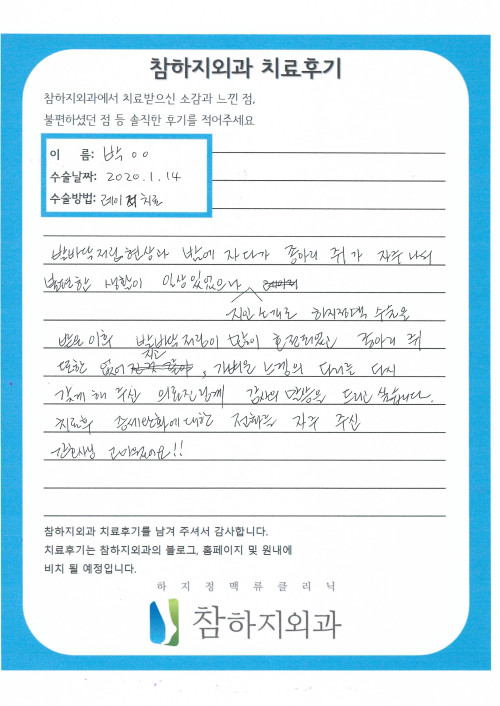 참하지외과 치료후기
참하지외과에서 치료받으신 소감과 느낀 점,
불편하셨던 점 등 솔직한 후기를 적어주세요
이 름: 박ㅇㅇ
수술날짜: 2020.1.14
수술방법: 레이저 치료
발바닥저림현상과 밤에 자다가 종아리 쥐가 자주 나서
불편한 생활이 일상이었으나
지인 소개로 하지정맥 수술을
받은 이후 발바닥저림이 많이 호전되었고 종아리 쥐
또한 없어지고, 가벼운 느낌의 다리를 다시
갖게 해 주신 의료진님께 감사의 말씀을 드리고 싶습니다.
치료후 증세변화에 대한 전화를 자주 주신
간호사님 고마웠어요!!
참하지외과 치료후기를 남겨 주셔서 감사합니다.
치료후기는 참하지외과의 블로그, 홈페이지 및 원내에
비치 될 예정입니다.
하지정맥류클리닉
참하지외과